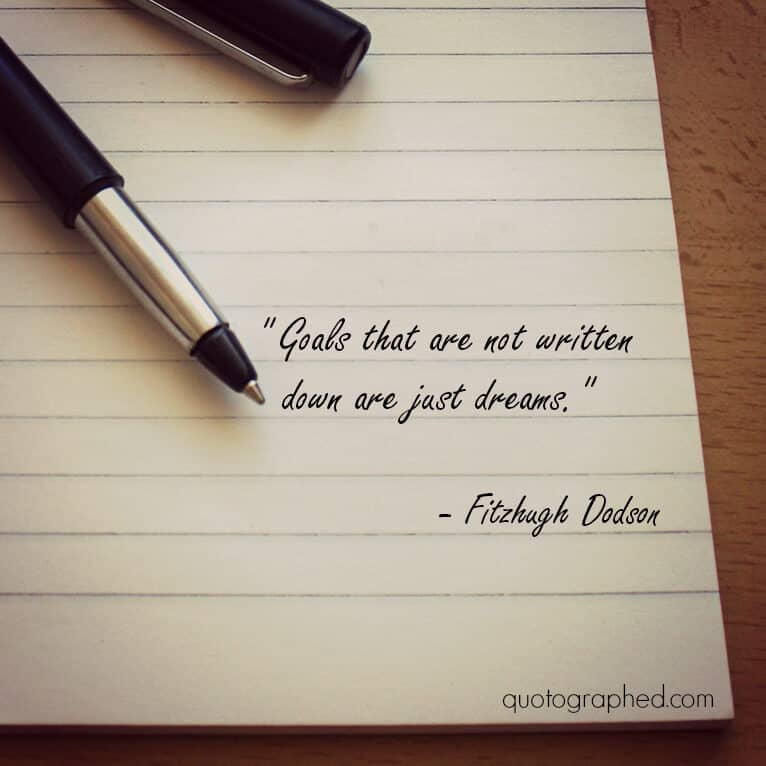 "Goals that are not written
down are just dreams."
- Fitzhugh Dodson
quotographed.com